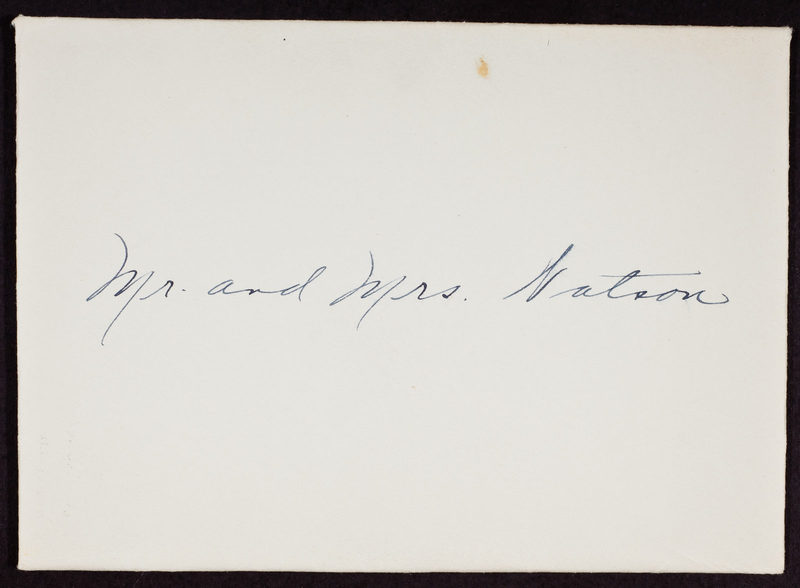 Mr. and Mrs. Watson